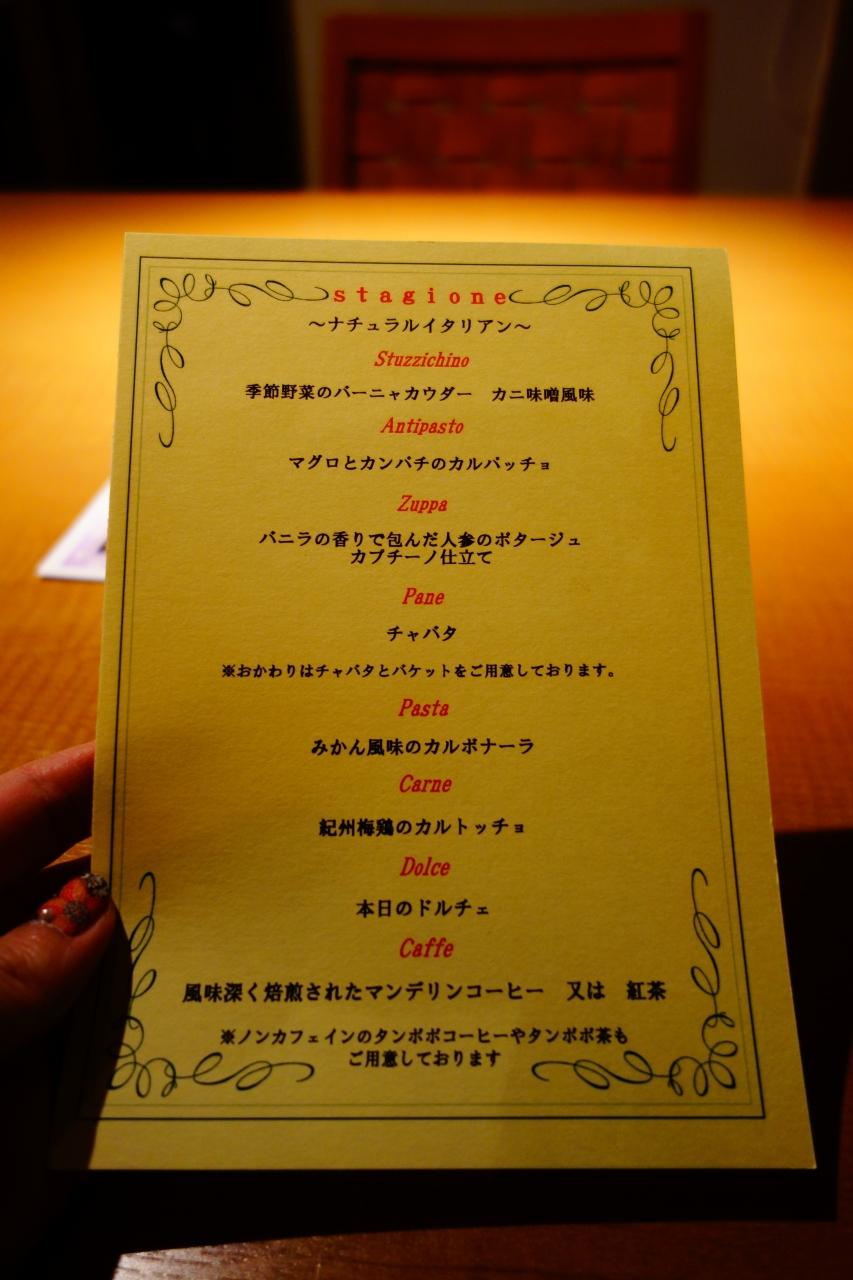 stagione
～ナチュラルイタリアン～
Stuzzichino
季節野菜のバーニャカウダー　カニ味噌風味
Antipasto
マグロとカンパチのカルパッチョ
Zuppa
バニラの香りで包んだ人参のポタージュ
カプチーノ仕立て
Pane
チャバタ
※おかわりはチャバタとバケットをご用意しております。
Pasta
みかん風味のカルボナーラ
Carne
紀州梅鶏のカルトッチョ
Dolce
本日のドルチェ
Caffe
風味深く焙煎されたマンデリンコーヒー　又は　紅茶
※ノンカフェインのタンポポコーヒーやタンポポ茶も
ご用意しております